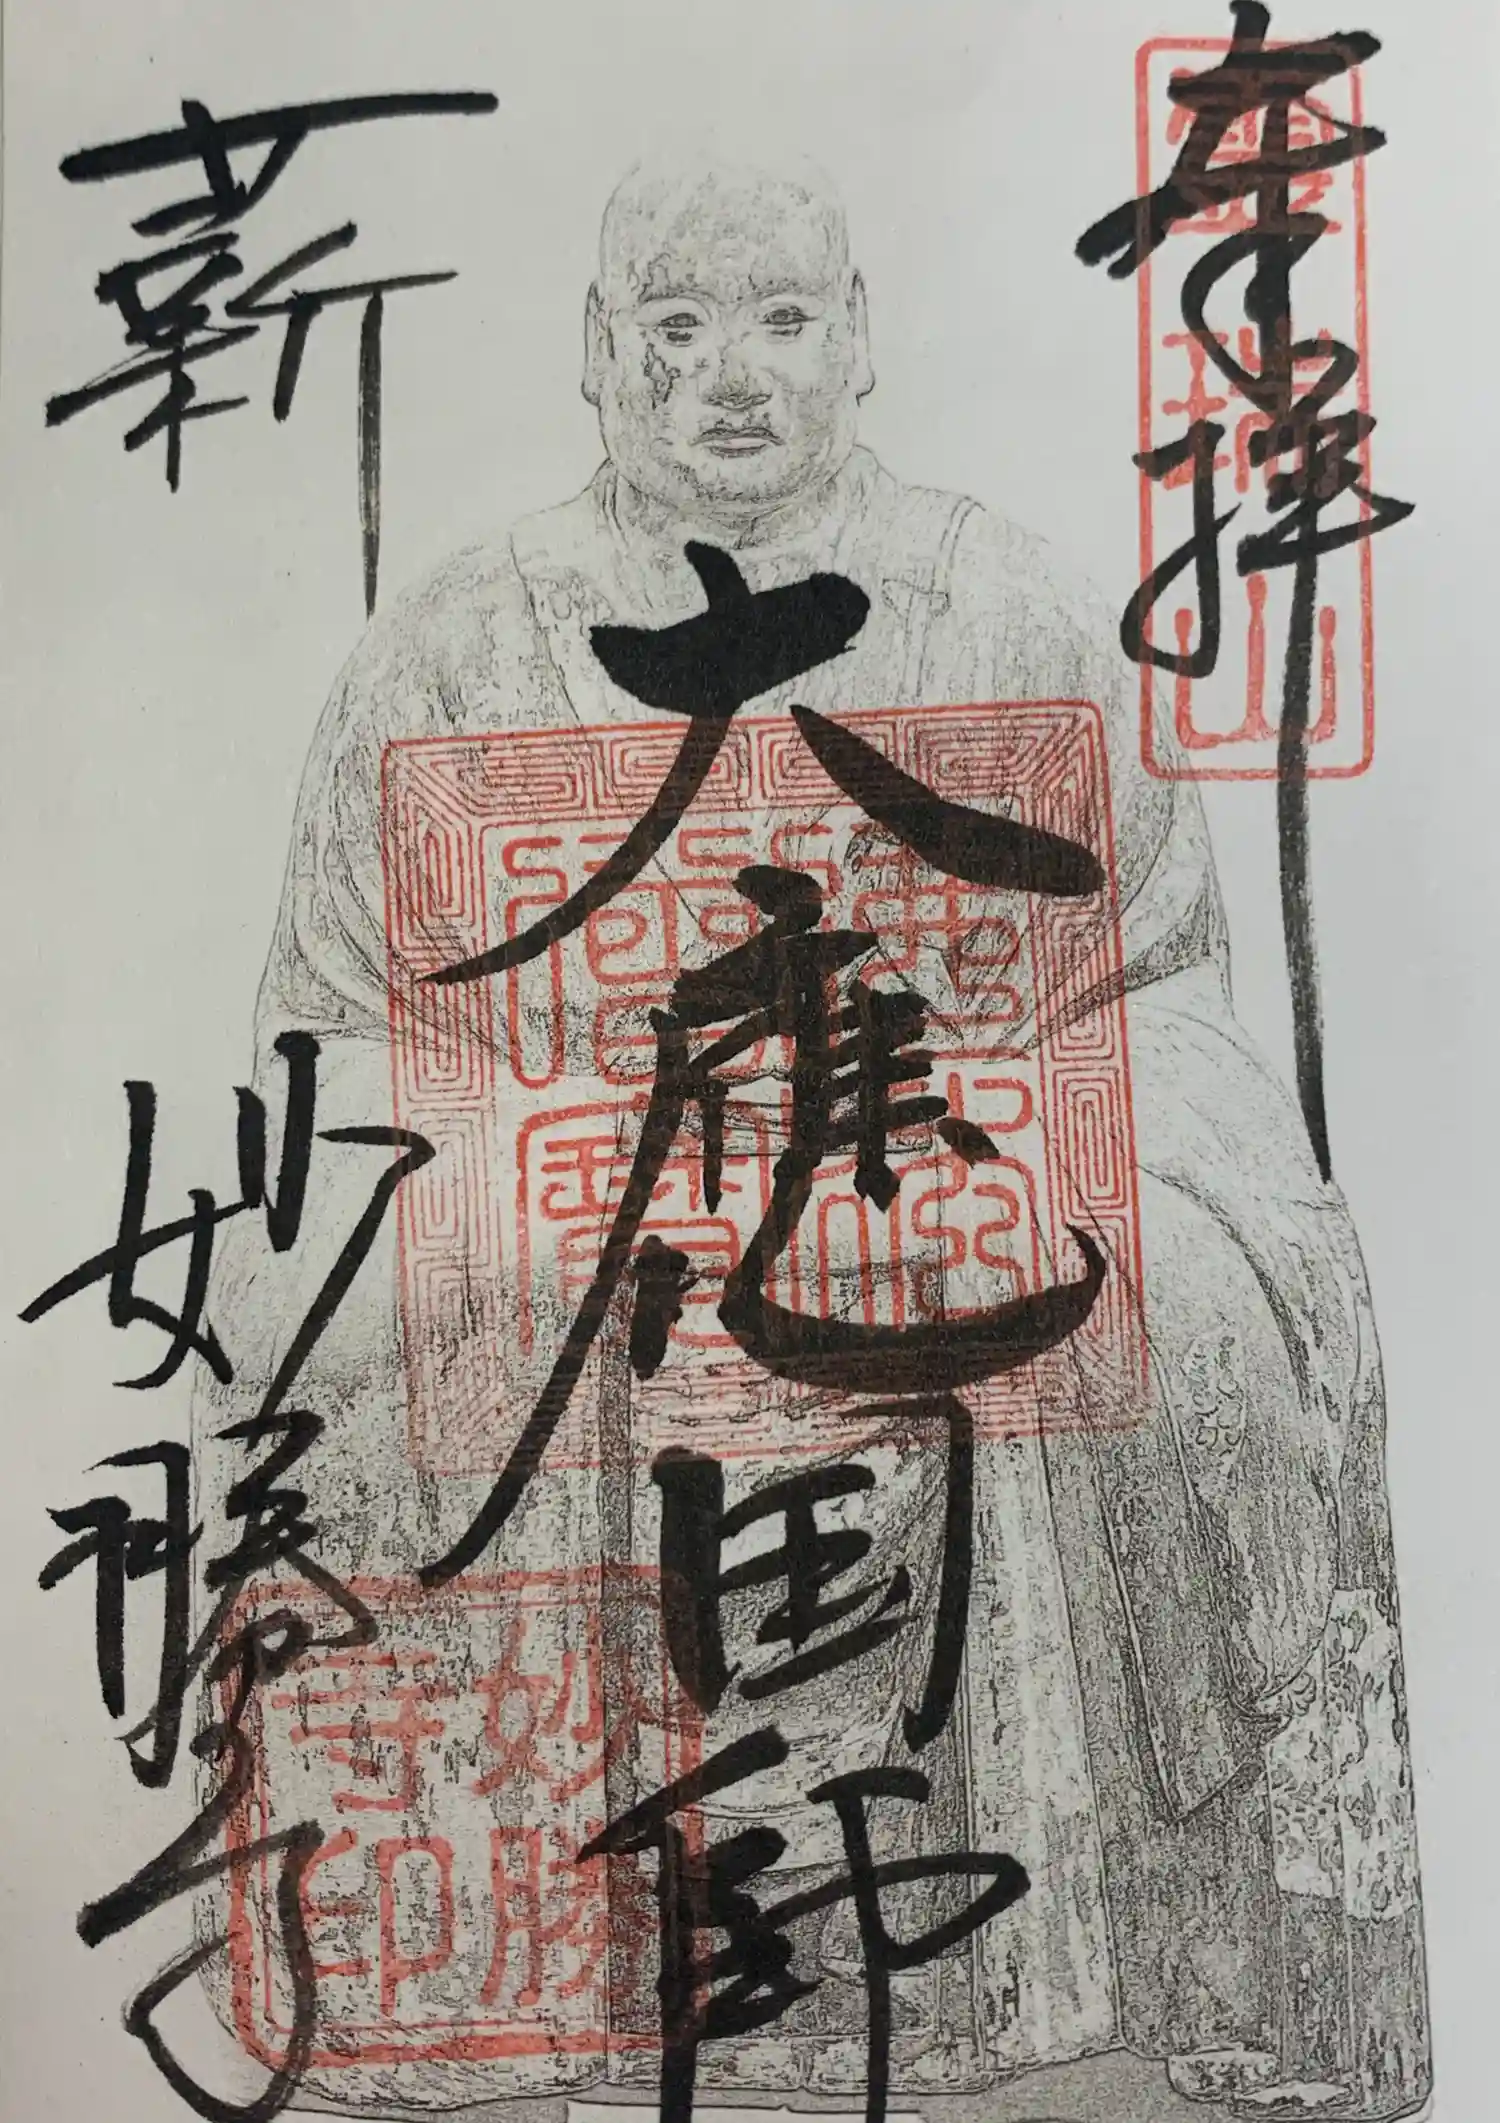 奉拝
靈瑞山
大應国師
薪
妙勝寺
妙勝
寺印